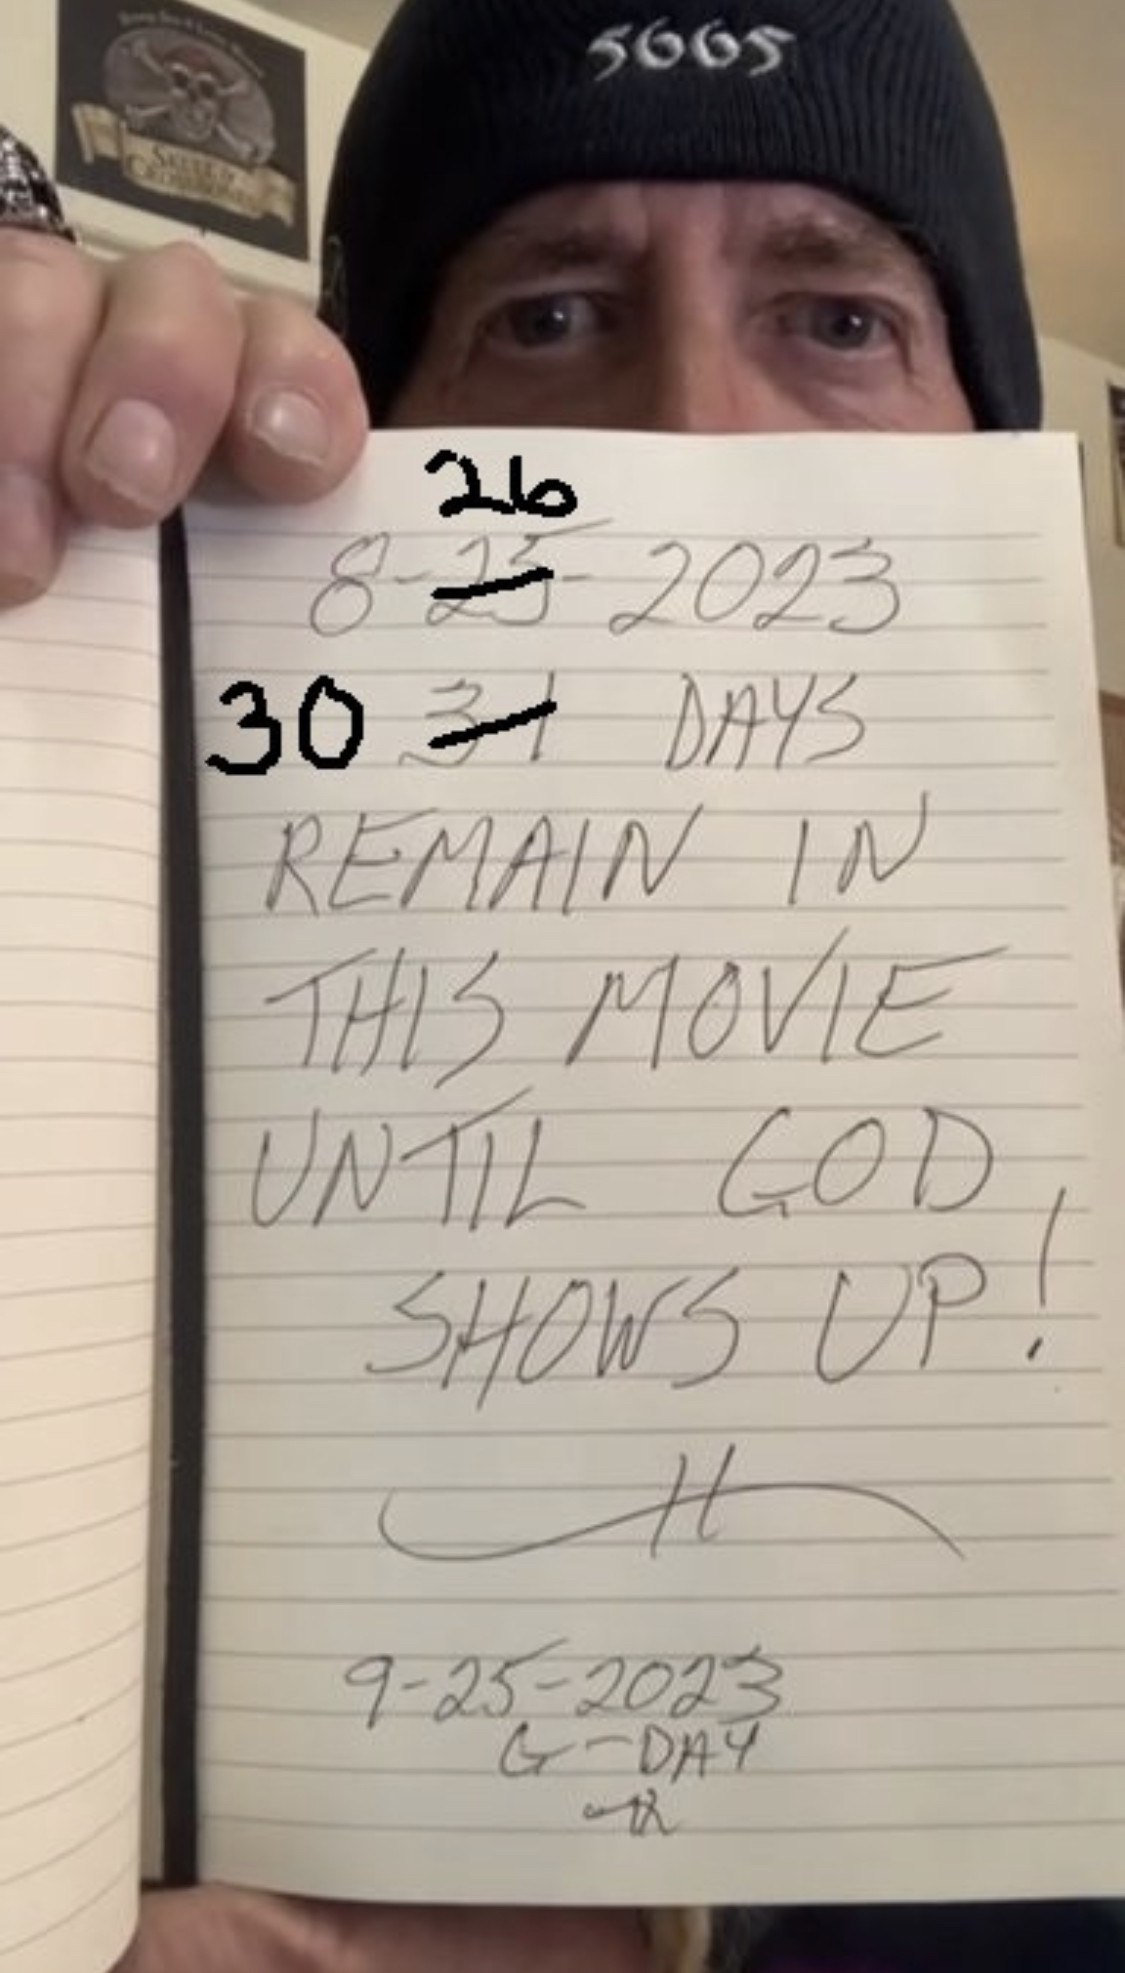 5665
SKULL &
CROSSBONES
26
8-25-2023
30 31 DAYS
REMAIN IN
THIS MOVIE
UNTIL GOD
SHOWS UP!
H
9-25-2023
G-DAY